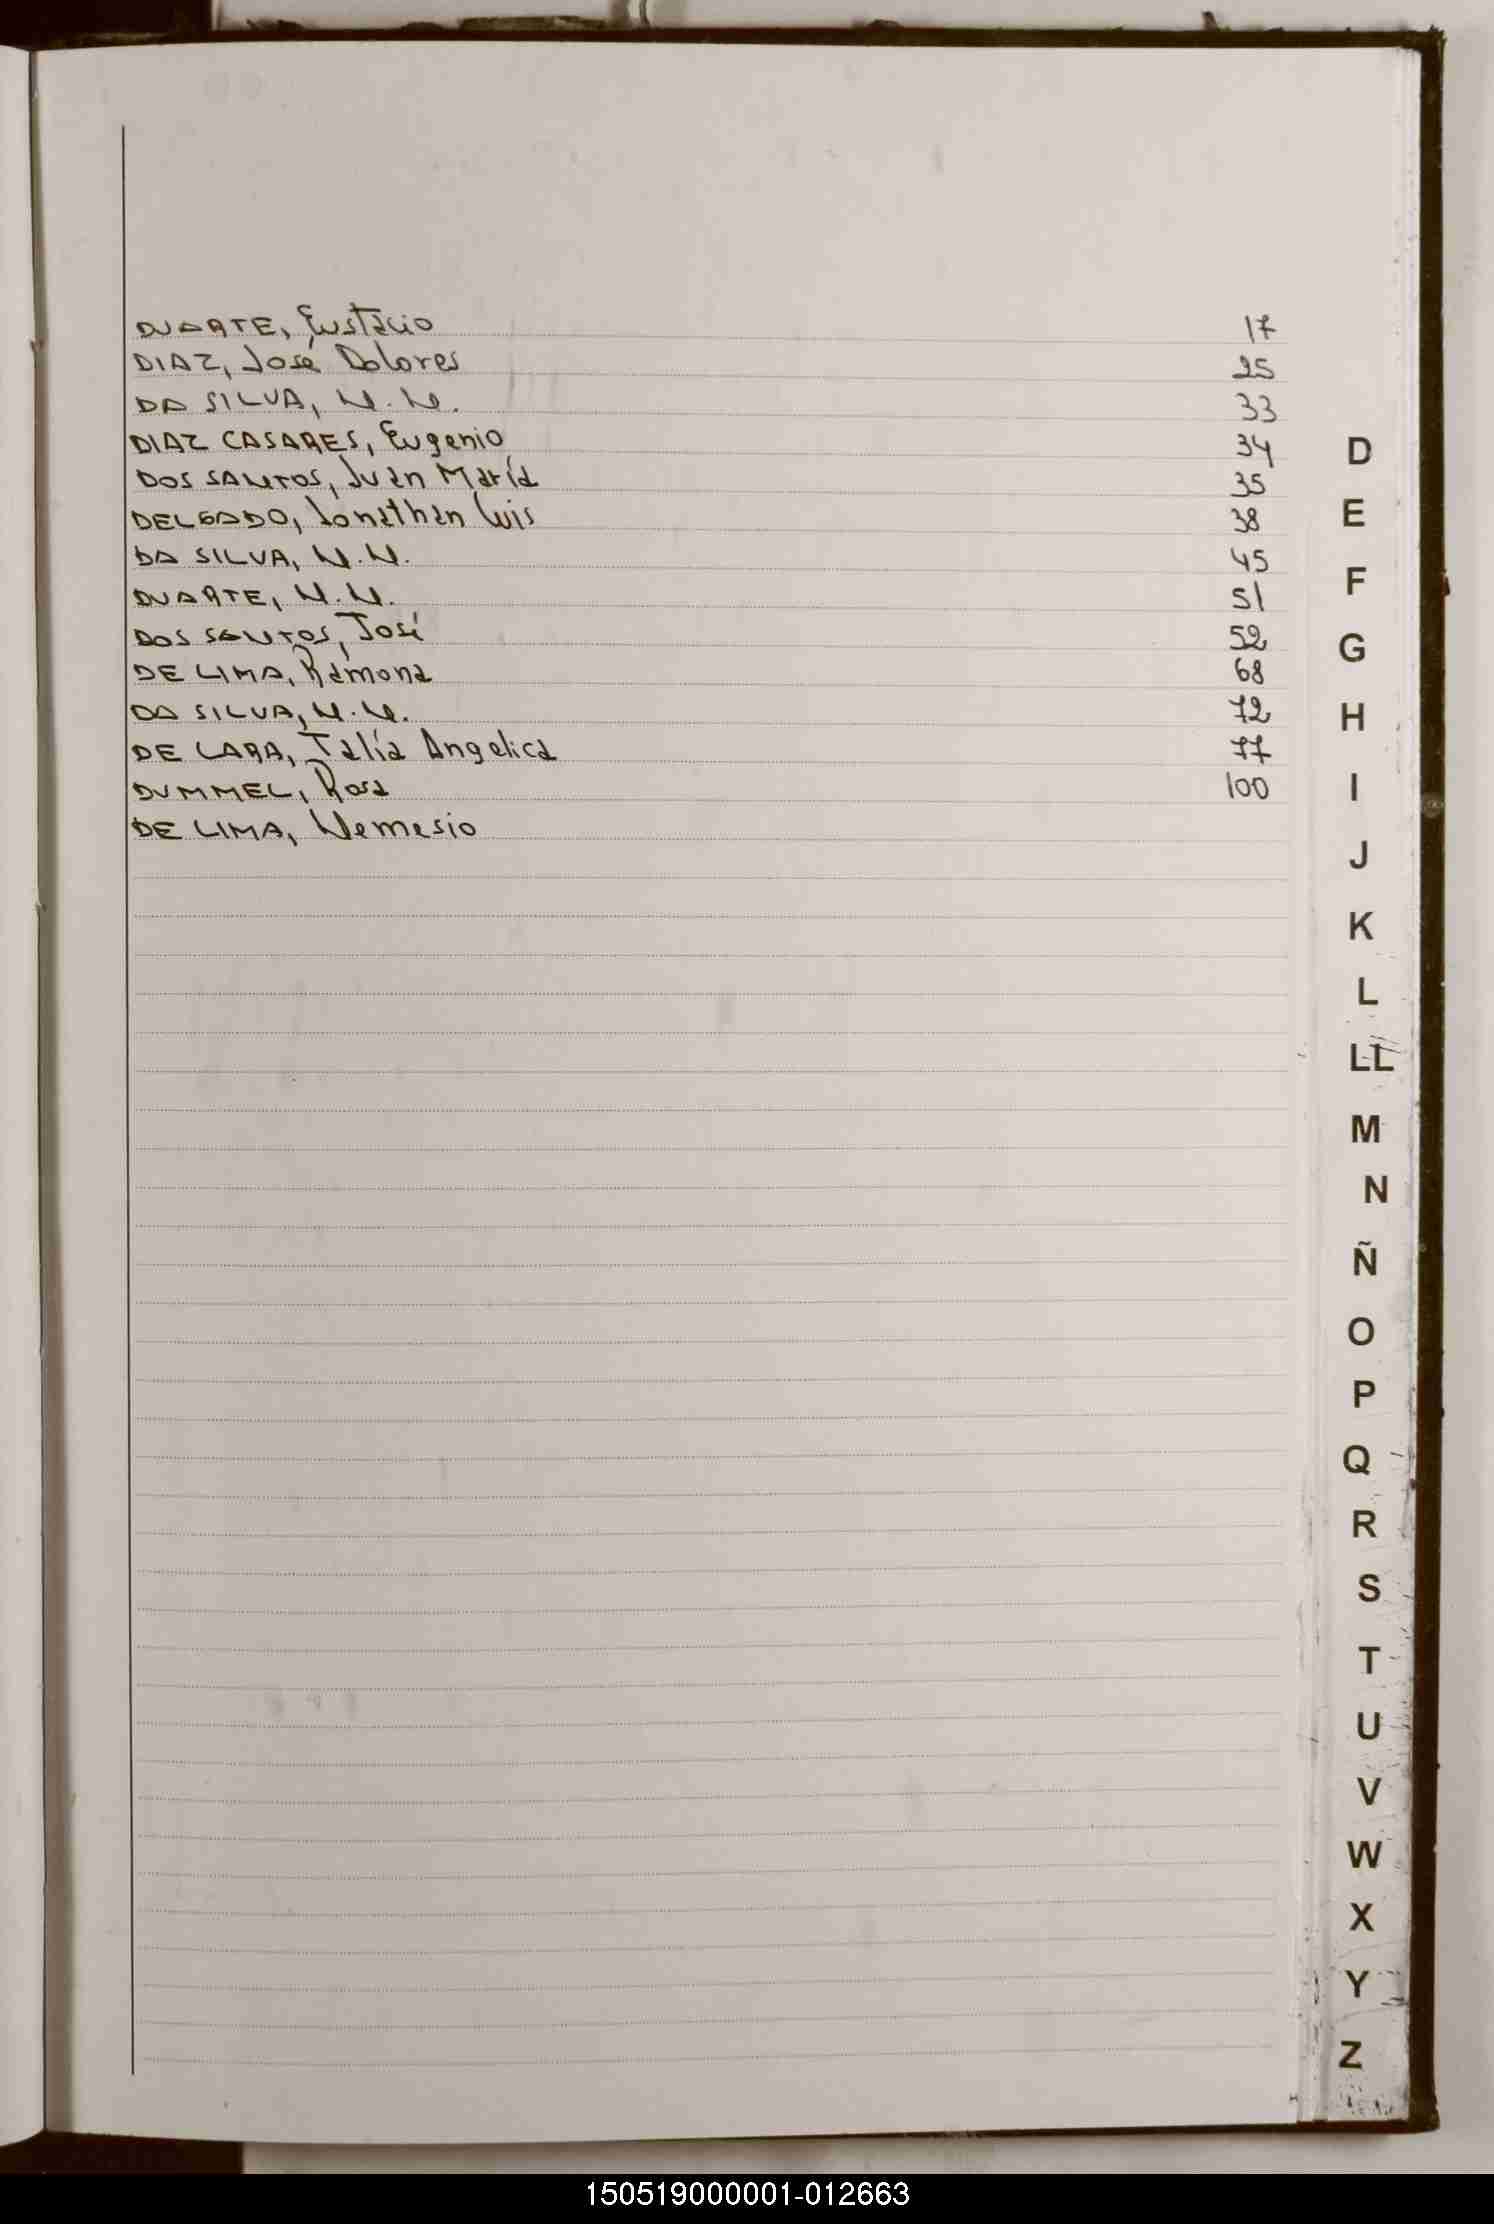 DUARTE, Eustacio 17
DIAZ, José Dolores 25
DA SILVA, N.N. 33
DIAZ CASARES, Eugenio 34
DOS SANTOS, Juan María 35
DELGADO, Jonathan Luis 38
DA SILVA, N.N. 45
DUARTE, N.N. 51
DOS SANTOS, José 52
DE LIMA, Ramona 68
DA SILVA, N.N. 72
DE LARA, Talía Angelica 77
DUMMEL, Rosa 100
DE LIMA, Nemesio
D
E
F
G
H
I
J
K
L
LL
M
N
Ñ
O
P
Q
R
S
T
U
V
W
X
Y
Z
150519000001-012663